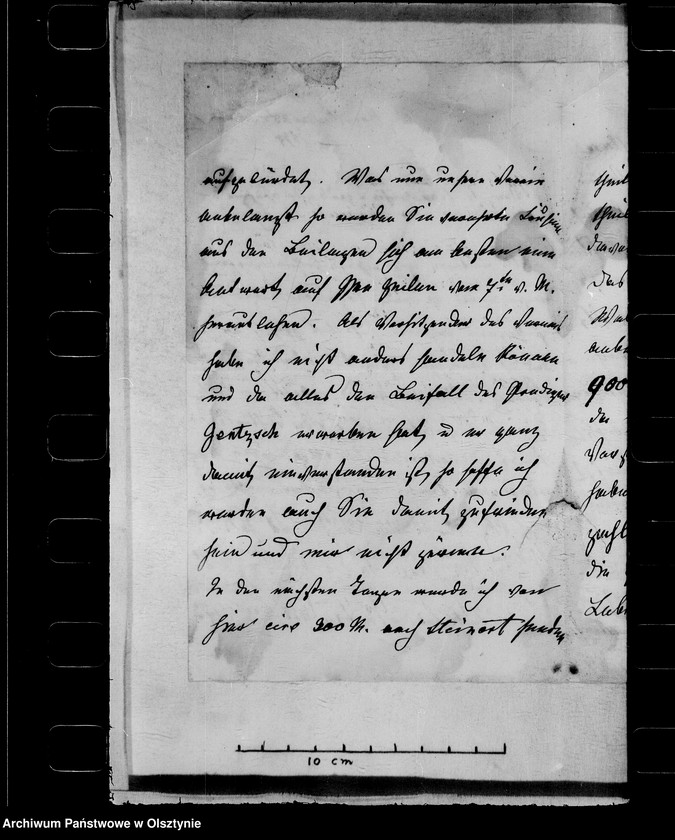 aufgebürdet. Was nun unsern Verein
anbelangt so werden Sie verehrte
aus den Beilagen sich am besten eine
Antwort auf Ihre Zeilen vom 7ten v. M.
herauslesen. Als Vorsitzender des Vereins
habe ich nicht anders handeln können
und da alles den Beifall des Predigers
Gentzsch erworben hat, u er ganz
damit einverstanden ist, so hoffe ich
werden auch Sie damit zufrieden
sein und mir nicht zürnen.
In den nächsten Tagen werde ich von
hier circ 300 M. nach Steinort senden
das
900
die
10 cm
Archiwum Państwowe w Olsztynie